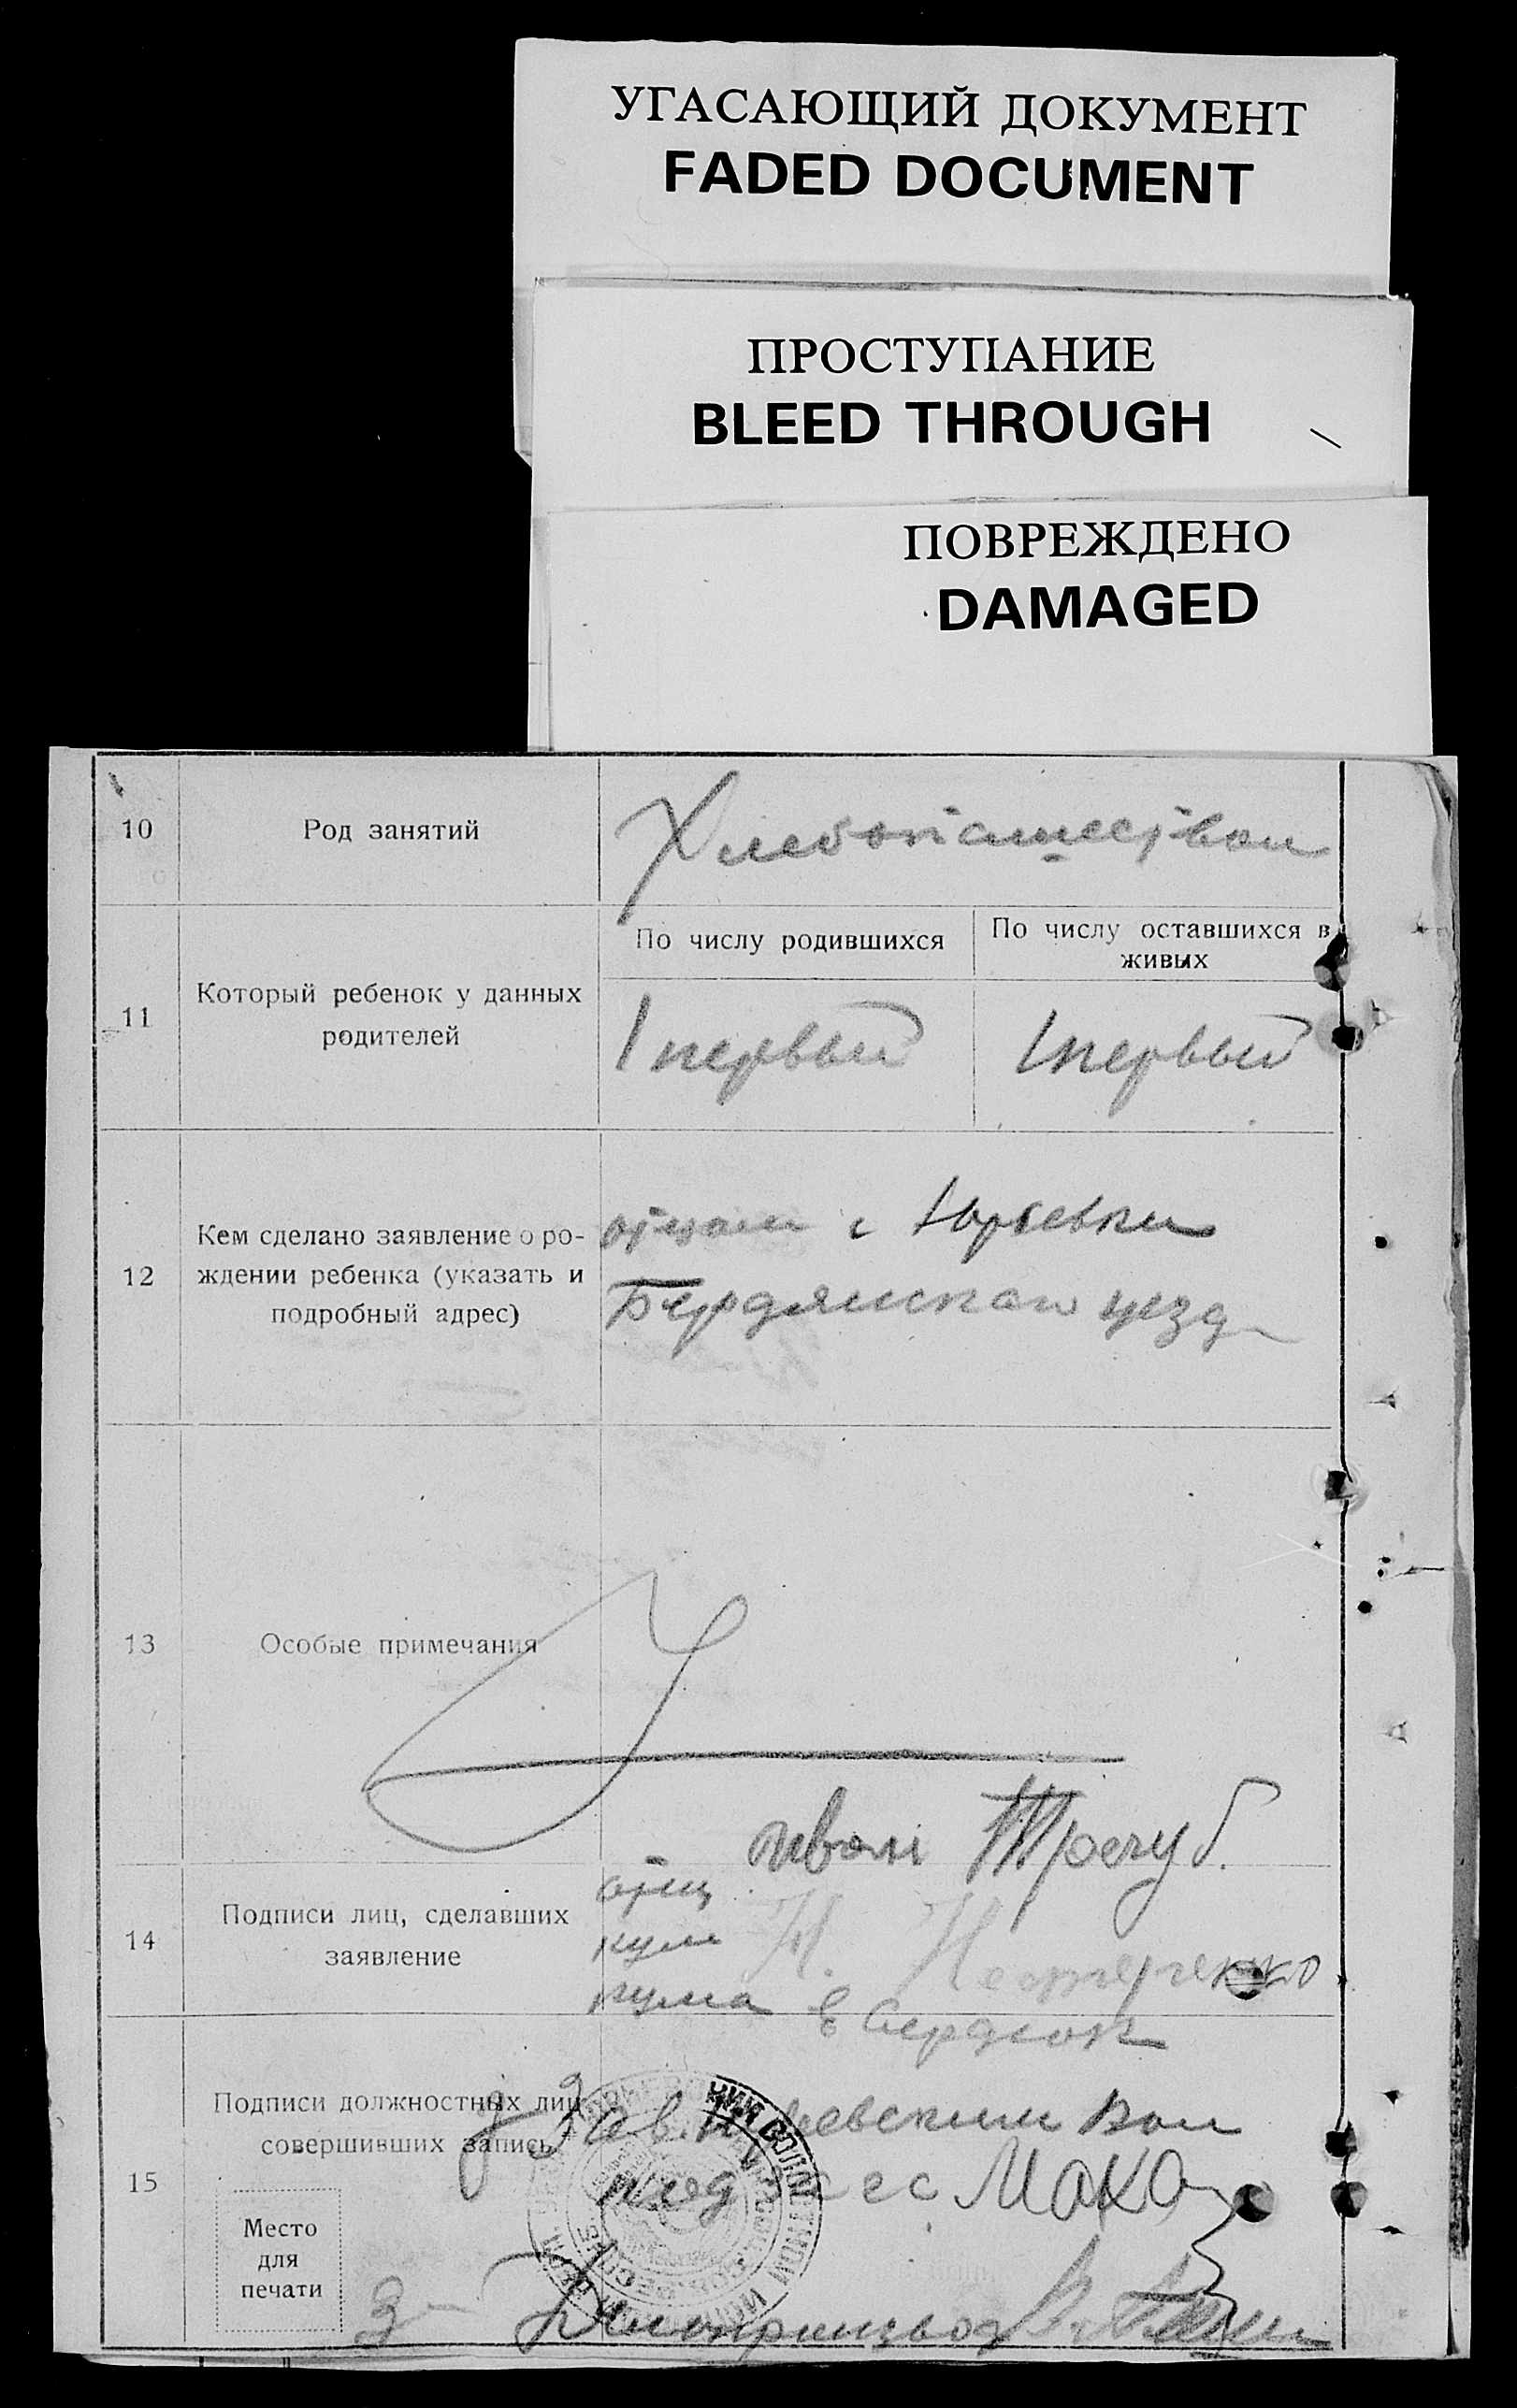 УГАСАЮЩИЙ ДОКУМЕНТ
FADED DOCUMENT
ПРОСТУПАНИЕ
BLEED THROUGH
ПОВРЕЖДЕНО
DAMAGED
10
Род занятий
Хлебопашеством
11
Который ребенок у данных
родителей
По числу родившихся
По числу оставшихся в
живых
1 первый
1 первый
12
Кем сделано заявление о ро-
ждении ребенка (указать и
подробный адрес)
отцом с Юрьевки
Бердянского уезд
13
Особые примечания
14
Подписи лиц, сделавших
заявление
отец Иван Трегуб.
кум Н.
кума Е Сердюк
15
Подписи должностных лиц
совершивших запись
Место
для
печати
Зав. Юрьевским Вол
под ЗАГС
Делопроизвод